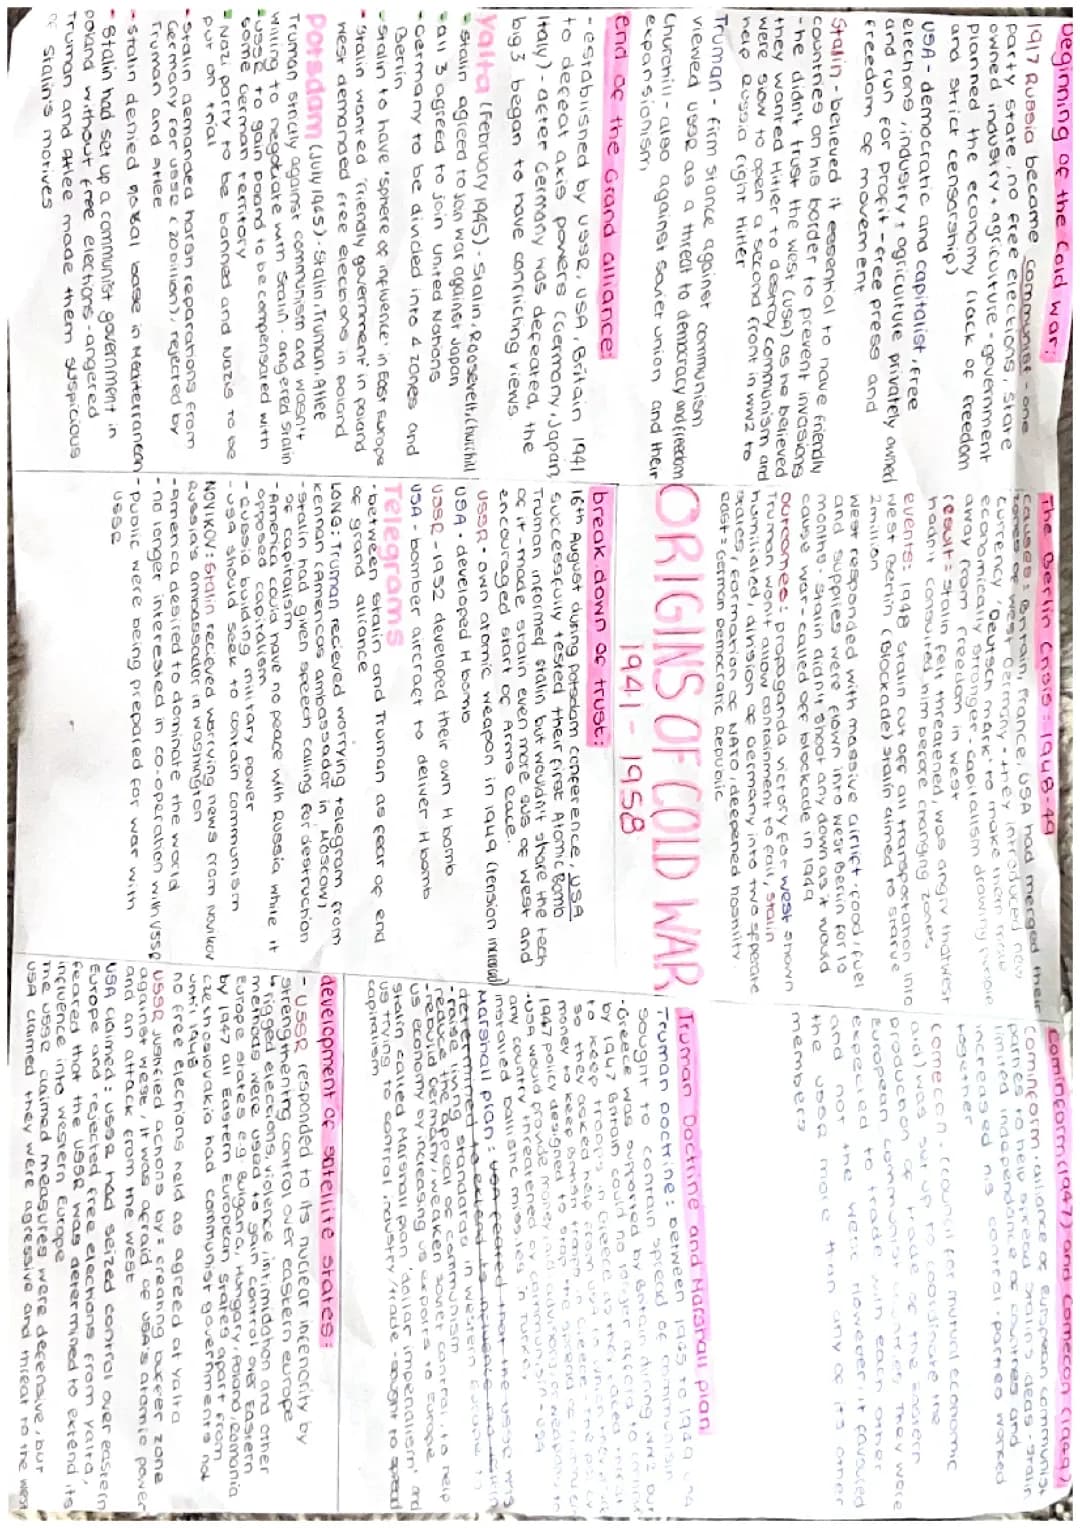 Beginning of the Cold war:
1917 Russia become communist - one
party state, no free elections, state
owned industry + agriculture - government
planned the economy (lack of freedom
and strict censorship)
USA - democratic and capitalist, free
elections, industry + agriculture privately owned
and run for profit - free press and
freedom of movement
Stalin - believed it essential to have friendly
countries on his border to prevent invasions
- he didn't trust the west (USA) as he believed
they wanted Hitler to destroy communism and
were slow to open a second front in ww2 to
help Russia fight Hitler
Truman - firm stance against communism
viewed USSR as a threat to democracy and freedom
Churchill - also against soviet union and their
expansionism
end of the Grand alliance:
- established by USSR, USA, Britain 1941
to defeat axis powers (Germany, Japan,
Italy) - after Germany was defeated, the
big 3 began to have conflicting views
Yalta (February 1945) - Stalin, Roosevelt, Churchill
• Stalin agreed to join war against Japan
• all 3 agreed to join United Nations
• Germany to be divided into 4 zones and
Berlin
• Stalin to have 'sphere of influence' in East Europe
• Stalin wanted 'friendly government' in poland
west demanded free elections in poland
Potsdam (July 1945) - Stalin, Truman, Attlee
Truman strictly against communism and wasn't
willing to negotiate with Stalin - angered Stalin
• USSR to gain poland to be compensated with
some German territory
• Nazi party to be banned and Nazis to be
put on trial
• Stalin demanded harsh reparations from
Germany for USSR (20 billion), rejected by
Truman and atlee
• Stalin denied naval base in Mediterranean
• Stalin had set up a communist government in
poland without free elections - angered
Truman and atlee made them suspicious
of Stalin's motives
The Berlin Crisis: 1948-49
causes: Britain, France, USA had merged their
zones of west Germany - they introduced new
currency 'Deutsch mark' to make them more
economically stronger - capitalism drawing people
away from freedom in west
result: Stalin felt threatened, was angry that west
hadn't consulted him before changing zones
events: 1948 Stalin cut off all transportation into
west Berlin (Blockade) Stalin aimed to starve
2 million
west responded with massive airlift - food, fuel
and supplies were flown into west Berlin for 10
months - Stalin didn't shoot any down as it would
cause war - called off blockade in 1949
outcomes: propaganda victory for west shown
Truman wont allow containment to fail, Stalin
humiliated, division of Germany into two seperate
states, formation of NATO, deepened hostility
east = German Democratic Republic
ORIGINS OF COLD WAR
1941 - 1958
break down of trust:
16th August during Potsdam conference, USA
successfully tested their first Atomic Bomb
Truman informed Stalin but wouldn't share the tech
of it - made Stalin even more sus of west and
encouraged start of Arms Race.
USSR - own atomic weapon in 1949 (tension increased)
USA - developed H bomb
USSR - 1952 developed their own H bomb
USA - bomber aircraft to deliver H bomb
Telegrams
- between Stalin and Truman as fear of end
of grand alliance
LONG: Truman recieved worrying telegram from
Kennan (Americas ambassador in Moscow)
- Stalin had given speech calling for destruction
of capitalism
- America could have no peace with Russia while it
opposed capitalism
- Russia building military power
- USA should seek to contain communism
NOVIKOV: Stalin recieved worrying news from Novikov
Russias ambassador in washington
- America desired to dominate the world
- no longer interested in co-operation with USSR
- public were being prepared for war with
USSR
Cominform (1947) and Comecon (1949)
Cominform - alliance of European communist
parties to help spread Stalin's ideas - Stalin
limited independance of countries and
increased his control - parties worked
together
Comecon - (council for mutual economic
aid) was set up to coordinate the
production of trade of the Eastern
European communist countries. They were
expected to trade with each other
and not the west. However, it favoured
the USSR more than any of its other
members
Truman Doctrine and Marshall plan
Truman doctrine: between 1945 to 1949 USA
sought to contain spread of communism
- Greece was supported by Britain during WW2 but
by 1947 Britain could no longer afford to
to keep troops in Greece
so they asked help from USA
money to keep British troops in Greece
1947 policy designed to stop the spread of communism
- USA would provide money and advisors/weapons to
any country threatened by communism - USA
installed ballistic missiles in Turkey
Marshall plan:
- raise living standard in western Europe to
reduce the appeal of communism
- rebuild Germany, weaken soviet control, to help
US economy by increasing US exports to Europe
Stalin called Marshall plan 'dollar imperialism' and
US trying to control industry/trade - sought to spread
capitalism
development of satellite states:
- USSR responded to its nuclear inferiority by
strengthening control over eastern europe
↳ rigged elections, violence, intimidation and other
methods were used to gain control over Eastern
Europe states e.g. Bulgaria, Hungary, Poland, Romania
by 1947 all Eastern European states apart from
czechoslovakia had communist governments not
until 1948
no free elections held as agreed at Yalta
USSR justified actions by: creating buffer zone
against west, it was afraid of USA's atomic power
and an attack from the west
USA claimed: USSR had seized control over eastern
Europe and rejected free elections from Yalta,
feared that the USSR was determined to extend its
influence into western Europe
The USSR claimed measures were defensive, but
USA claimed they were agressive and threat to the west